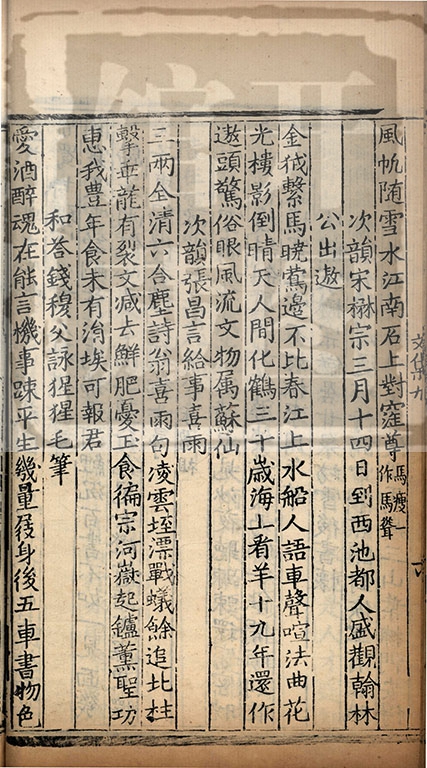 風帆随雪水江南石上對窪尊馬瘦一作馬聱
次韻宋楙宗三月十四日到西池都人盛觀翰林
公出遨
金狘繫馬曉鶯邊不比春江上水船人語車聲喧法曲花
光樓影倒晴天人間化鶴三千歲海上看羊十九年還作
遨頭驚俗眼風流文物属蘇仙
次韻張昌言給事喜雨
三雨全清六合塵詩翁喜雨句凌雲垤漂戰蟻餘追北柱
擊乖龍有裂文减去鮮肥憂玉食徧宗河嶽起鑪薰聖功
惠我豊年食未有涓埃可報君
和荅錢穆父詠猩猩毛筆
愛酒醉魂在能言機事踈平生幾量屐身後五車書物色
文集九